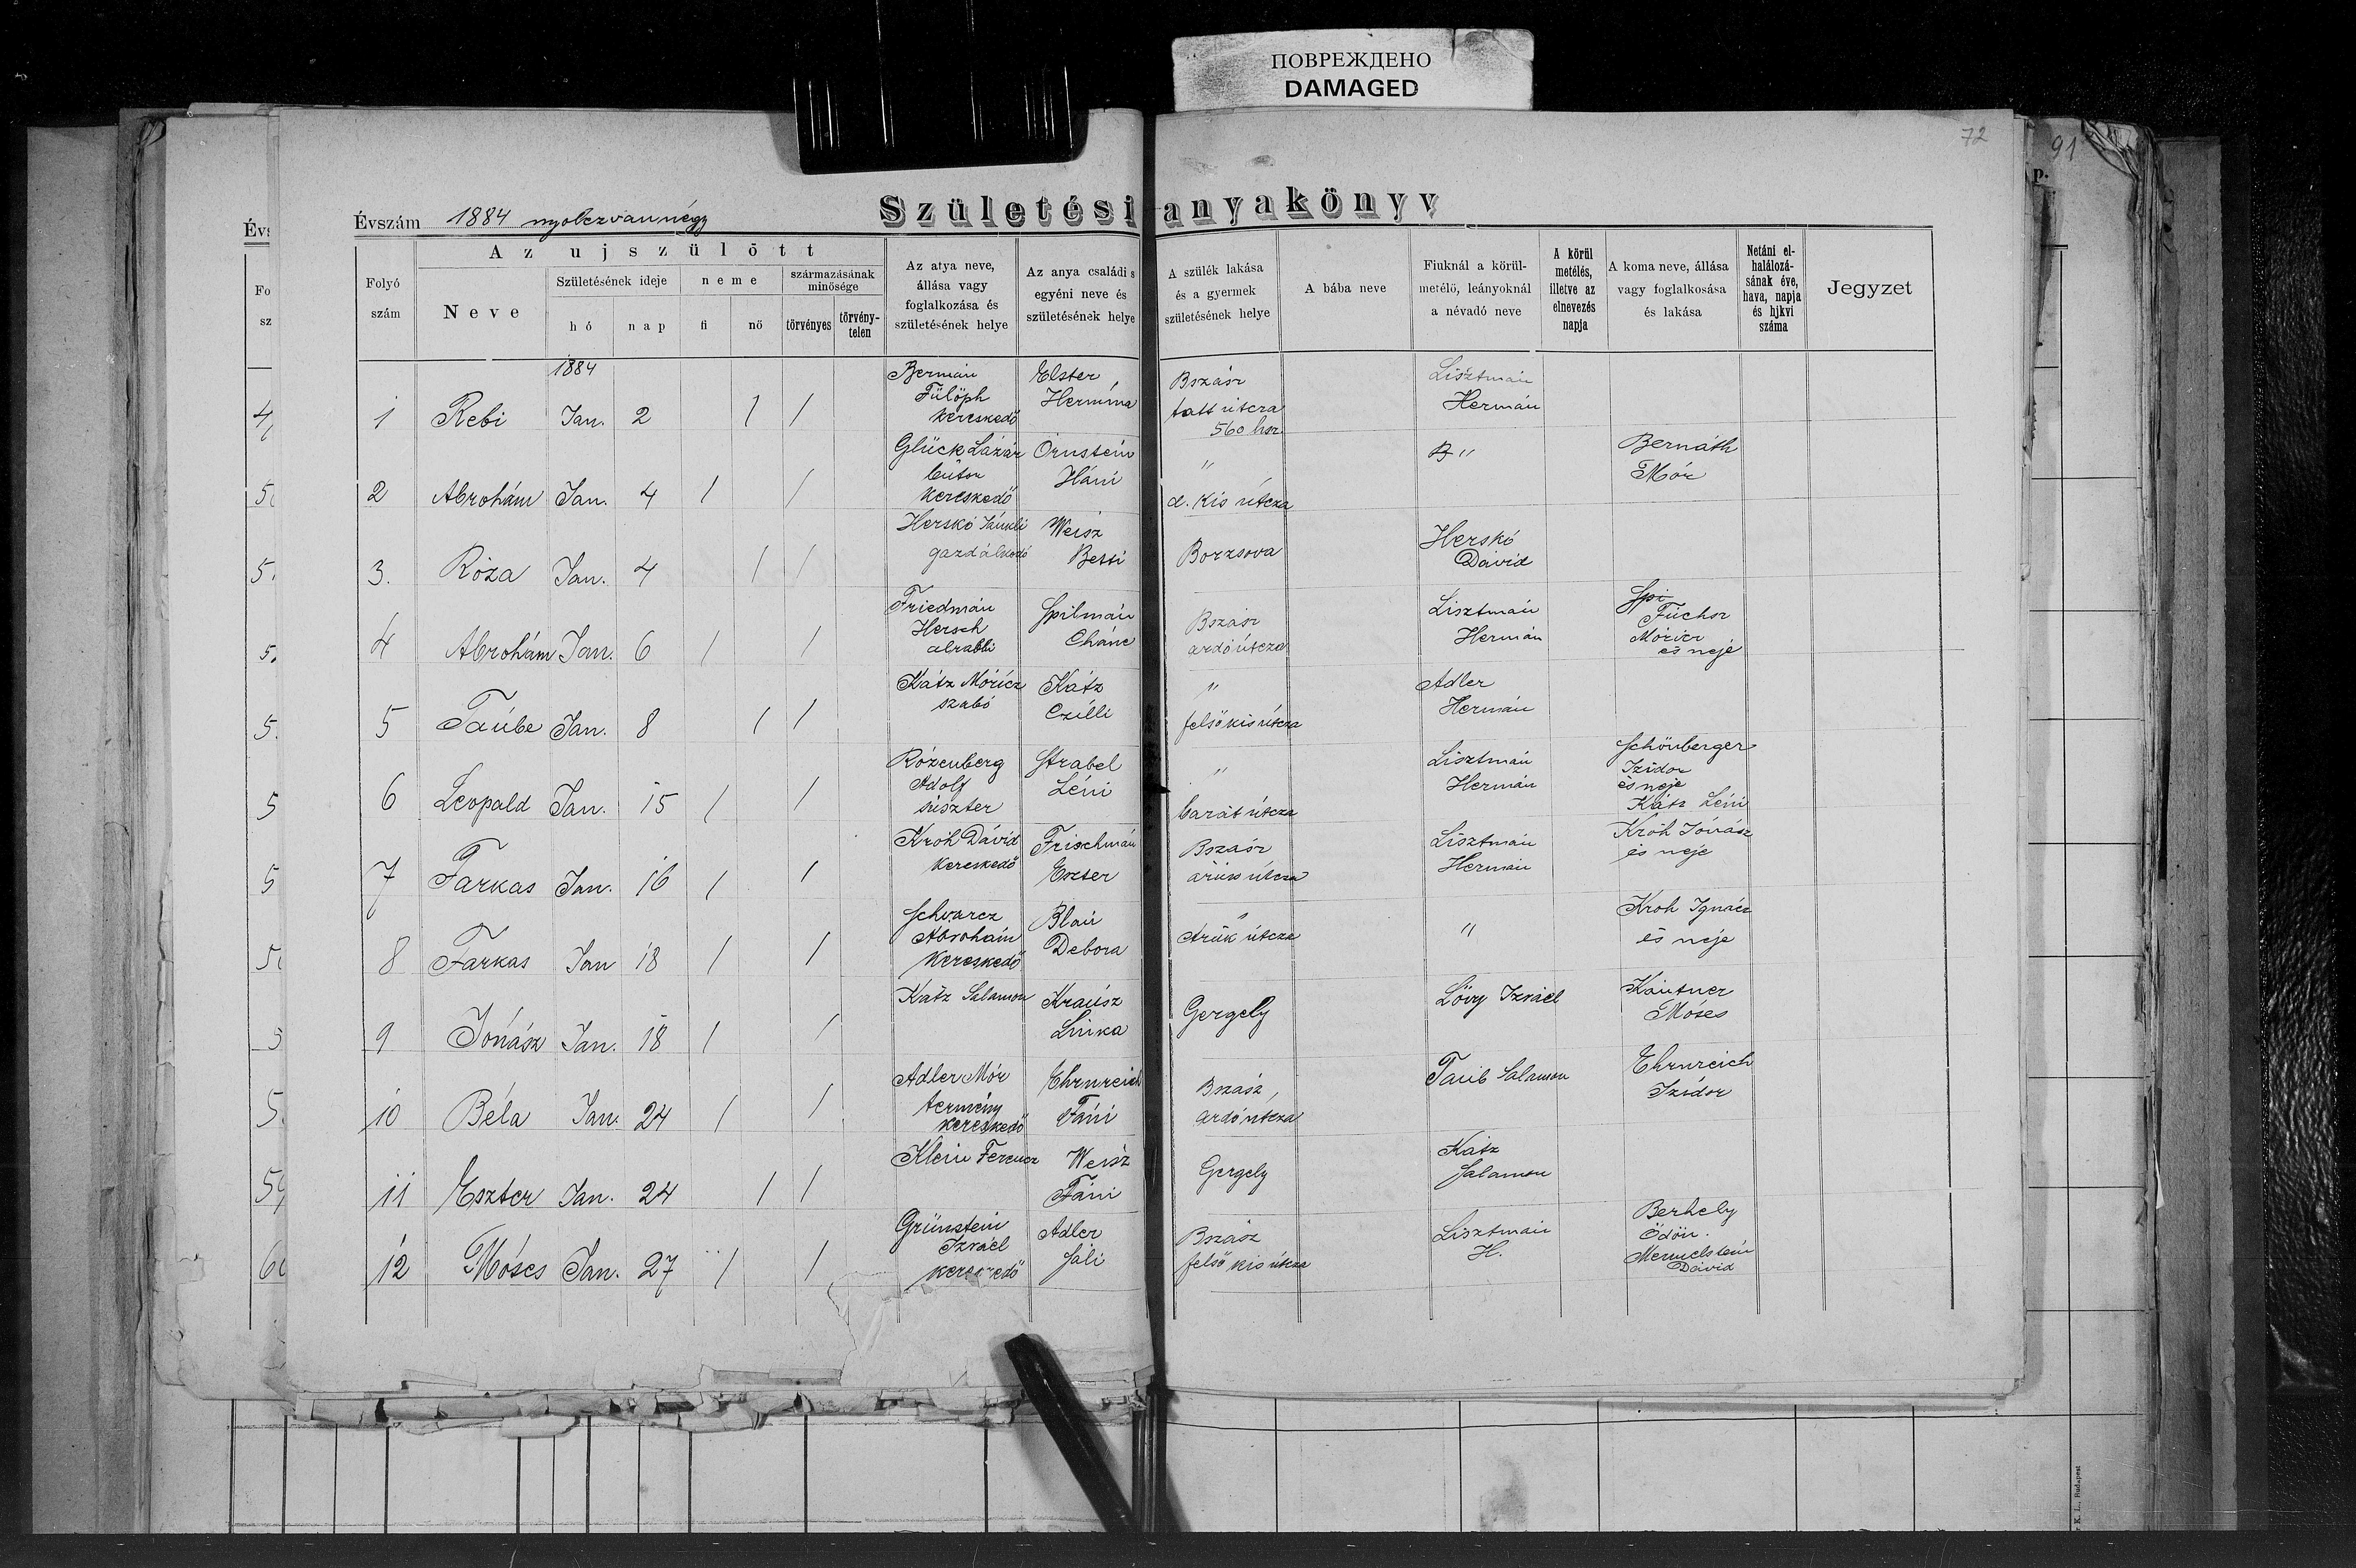 ПОВРЕЖДЕНО
DAMAGED
72
91
p.
Évszám 1884 nyolczvannégy
Születési anyakönyv
Évs
Fo
sz
Folyó
szám
Az ujszülött
Neve
Születésének ideje
hó
nap
neme
fi
nő
származásának
minősége
törvényes
törvény-
telen
Az atya neve,
állása vagy
foglalkozása és
születésének helye
Az anya családi s
egyéni neve és
születésének helye
A szülék lakása
és a gyermek
születésének helye
A bába neve
Fiuknál a körül-
metélő, leányoknál
a névadó neve
A körül
metélés,
illetve az
elnevezés
napja
A koma neve, állása
vagy foglalkosása
és lakása
Netáni el-
halálozá-
sának éve,
hava, napja
és hjkvi
száma
Jegyzet
1884
1 Rebi Jan. 2 1 1
Bermán
Fülöph
kereskedő
Elster
Hermina
Bszász
tatt útcza
560 hsz.
Lisztmán
Hermán
2 Abrohám Jan. 4 1 1
Glück Lázár
bútor
kereskedő
Ornstein
Háni
"
d. kis útcza
B "
Bernáth
Mór
3. Róza Jan. 4 1 1
Herskó Jánkli
gazdálkodó
Weisz
Betti
Borzsova
Herskó
Dávid
4 Abrohám Jan. 6 1 1
Friedmán
Hersch
alrabbi
Spilmán
Cháne
Bszász
ardó útcza
Lisztmán
Hermán
Spi
Fuchsz
Móricz
és neje
5 Taúbe Jan. 8 1 1
Kátz Móricz
szabó
Kátz
Czilli
"
felső kis útcza
Adler
Hermán
6 Leopald Jan. 15 1 1
Rózenberg
Adolf
suszter
Strabel
Léni
"
barát útcza
Lisztmán
Hermán
Schönberger
Izidor
és neje
Kátz Léni
7 Farkas Jan. 16 1 1
Króh Dávid
kereskedő
Frischmán
Eszter
Bszász
árúk útcza
Lisztmán
Hermán
Króh Jónász
és neje
8 Farkas Jan 18 1 1
Schvarcz
Abrohám
kereskedő
Blau
Debora
"
Árük útcza
"
Kroh Ignácz
és neje
9 Jónász Jan. 18 1 1
Katz Salamon
Krausz
Linka
Gergely
Lövy Izráel
Kautner
Móses
10 Béla Jan. 24 1 1
Adler Mór
termény
kereskedő
Ehrnreich
Fáni
Bszász,
ardó utcza
Taub Salamon
Ehrnreich
Izídor
11 Eszter Jan. 24 1 1
Klein Ferencz
Weisz
Fáni
Gergely
Kátz
Salamon
12 Móses Jan. 27 1 1
Grünstein
Izráel
kereskedő
Adler
Sáli
Bszász
felső kis útcza
Lisztmán
H.
Berhely
Ödön.
Mermelstein
Dávid